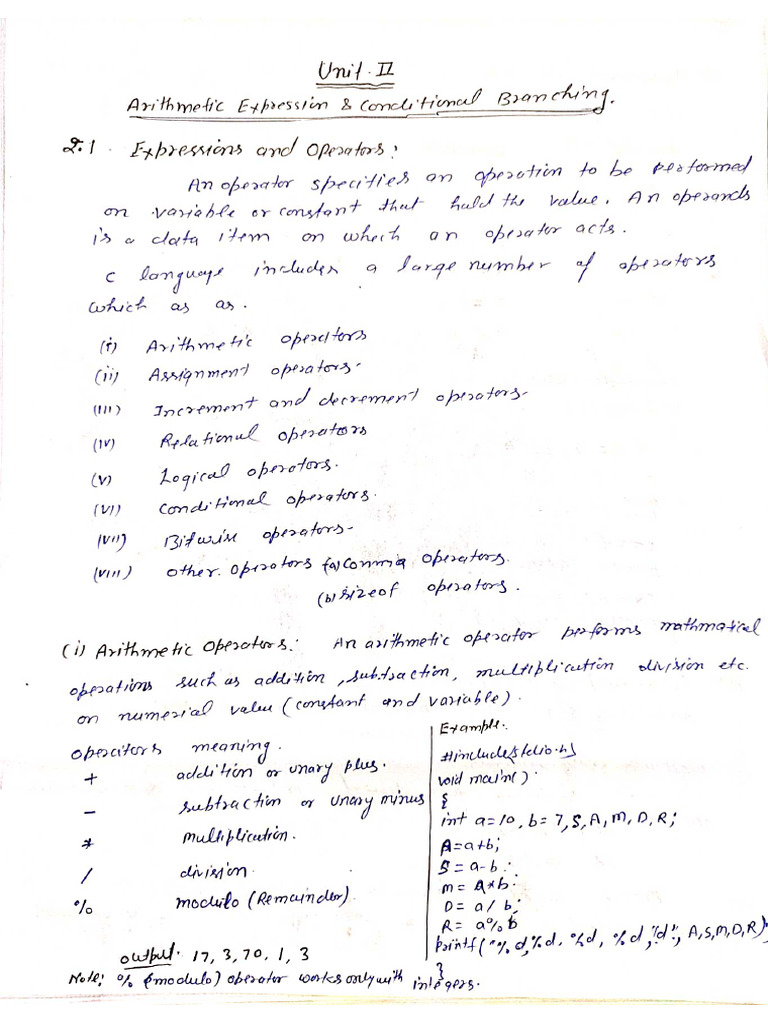 Unit-II
Arithmetic Expression & Conditional Branching.
2.1. Expressions and Operators:
An operator specifies an operation to be performed
on variable or constant that hold the value. An operands
is a data item on which an operator acts.
C language includes a large number of operators
which as as.
(i) Arithmetic operators
(ii) Assignment operators.
(iii) Increment and decrement operators.
(iv) Relational operators
(v) Logical operators.
(vi) Conditional operators.
(vii) Bitwise operators.
(viii) Other operators (a) Comma operators.
(b) sizeof operators.
(i) Arithmetic Operators: An arithmetic operator performs mathmatical
operations such as addition, subtraction, multiplication division etc.
on numerial value (constant and variable).
operators meaning.
+ addition or unary plus.
- subtraction or unary minus
* multiplication.
/ division.
% modulo (Remainder).
Example:
#include<stdio.h>
void main()
{
int a=10, b=7, S, A, M, D, R;
A=a+b;
S=a-b.
M=a*b.
D=a/b;
R=a%b
printf("%d,%d, %d, %d, %d", A,S,M,D,R);
}
output. 17, 3, 70, 1, 3
Note: % (modulo) operator works only with integers.